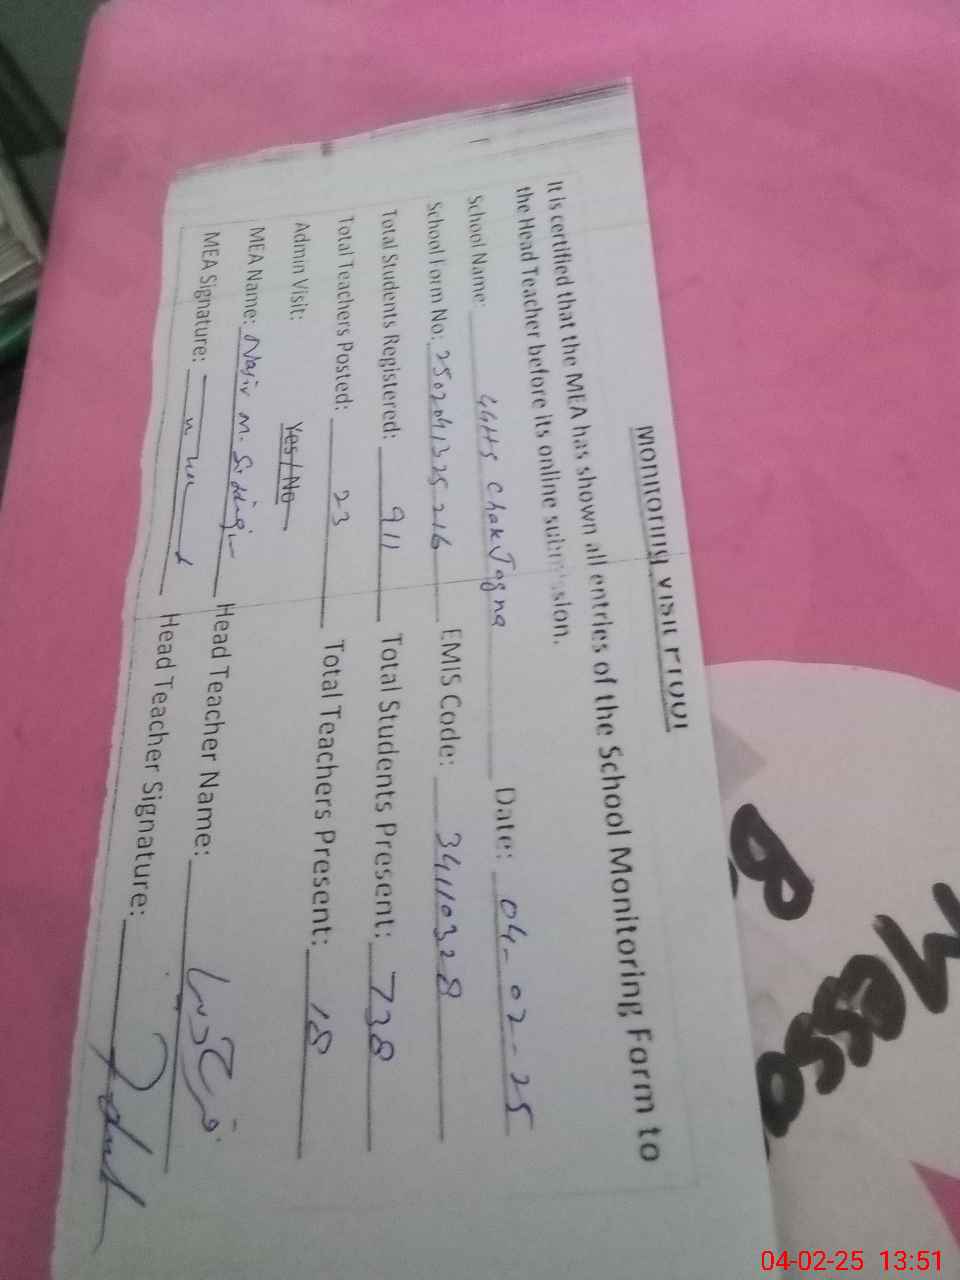 Monitoring Visit Proof
It is certified that the MEA has shown all entries of the School Monitoring Form to
the Head Teacher before its online submission.
School Name: GGHS Chak Jogna Date: 04-02-25
School Form No: 2502041325216 EMIS Code: 34110328
Total Students Registered: 911 Total Students Present: 738
Total Teachers Posted: 23 Total Teachers Present: 18
Admin Visit: Yes/No
MEA Name: Nasir M. Siddiqi Head Teacher Name:
MEA Signature: Head Teacher Signature:
04-02-25 13:51